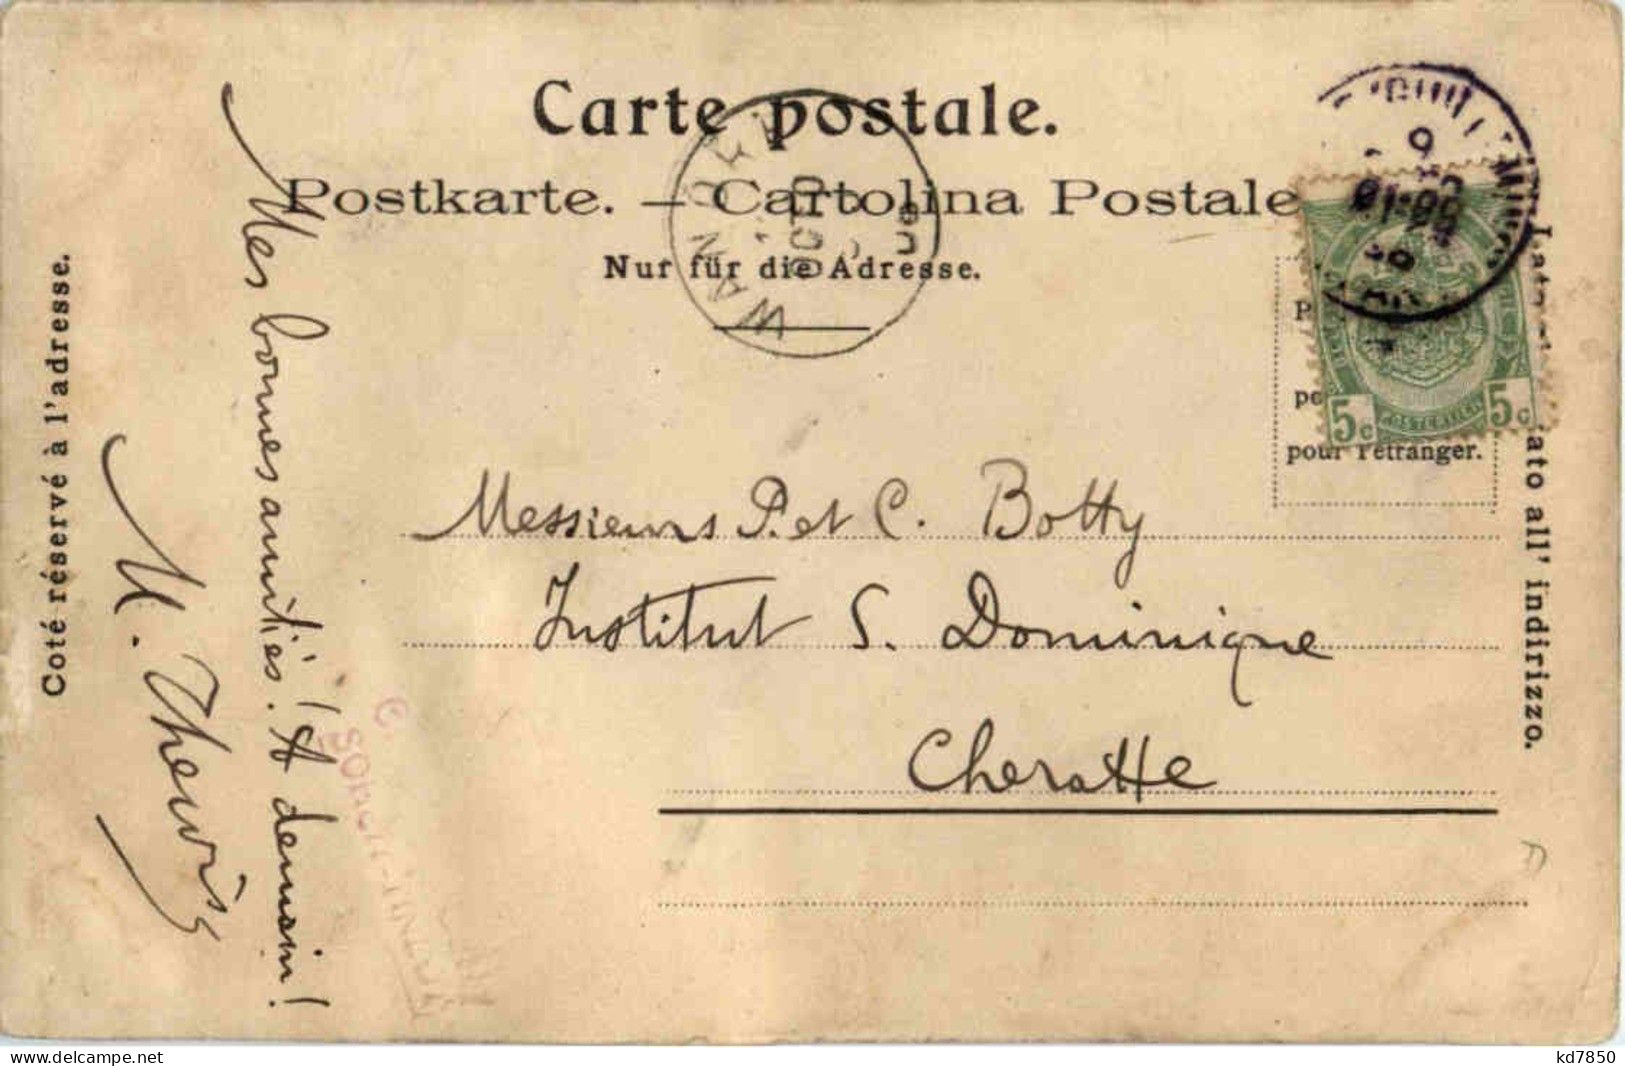 Carte postale.
Postkarte. — Cartolina Postale
Nur für die Adresse.
WANDRE
Coté réservé à l'adresse.
Mes bonnes amitiés. A demain!
M. Thewis
Messieurs P. et C. Botty
Institut S. Dominique
Cheratte
pour l'étranger.
5c 5c
Lato
ato all' indirizzo.
www.delcampe.net
kd7850